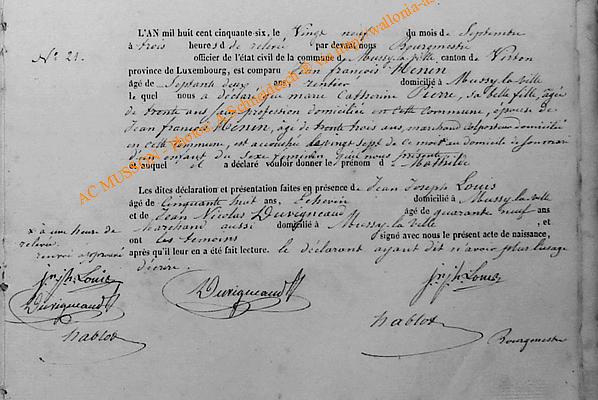 N° 21.
L'AN mil huit cent cinquante-six, le Vingt neuf du mois de Septembre
à trois heures d de relevée par devant nous Bourgmestre
officier de l'état civil de la commune de Mussy la ville, canton de Virton
province de Luxembourg, est comparu Jean françois Henen
âgé de Septante deux ans rentier domicilié à Mussy-la-ville
le quel nous a déclaré que marie Catherine Pierre, sa belle fille, agée
de trente ans sans profession domiciliée en cette Commune, épouse de
Jean françois Henen, agé de trente trois ans, marchand colporteur domicilié
en cette commune, est accouchée le vingt sept de ce mois au domicile de son mari
d'un enfant du Sexe feminin qu'il nous présente
et auquel il a déclaré vouloir donner le prénom de Mathilde
Les dites déclaration et présentation faites en présence de Jean Joseph Louis
âgé de Cinquante huit ans, Echevin domicilié à Mussy-la-ville
et de Jean Nicolas Duvigneaud âgé de quarante neuf ans
Marchand aussi domicilié à Mussy-la-ville, et
ont les temoins signé avec nous le présent acte de naissance,
après qu'il leur en a été fait lecture. le déclarant ayant dit n'avoir plus l'usage
d'écrire.
x à une heure de
relevée.
renvoi approuvé
J̶n jh Louis
Duvigneaud
hablot
Duvigneaud
Jn jh Louis
hablot
Bourgmestre
AC MUSSON - Photos A Schmidesch © http://wallonia-as